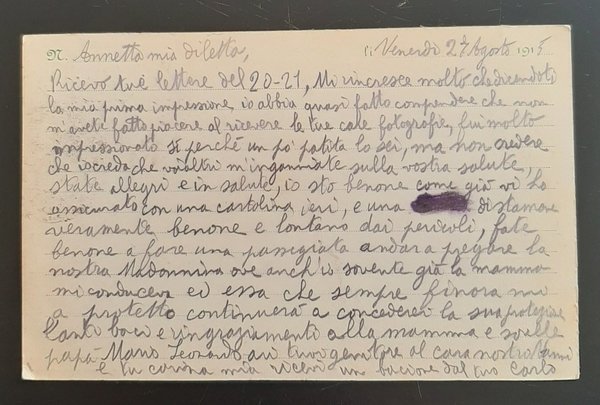 N. Annetta mia diletta, li Venerdì 27 Agosto 1915
Ricevo tue lettere del 20-21, Mi rincresce molto che dicendoti
la mia prima impressione io abbia quasi fatto comprendere che non
m'avete fatto piacere al ricevere le tue care fotografie, fui molto
impressionato sì perché un po' patita lo sei, ma non credere
che io creda che voialtri m'inganniate sulla vostra salute,
state allegri e in salute, io sto benone come già vi ho
assicurato con una cartolina ieri, e una di stamane
veramente benone e lontano dai pericoli, fate
benone a fare una passegiata andare a pregare la
nostra Madonnina ove anch'io sovente già la mamma
mi conduceva ed essa che sempre finora mi
a protetto continuerà a concederci la sua protezione
Tanti baci e ringraziamenti alla mamma e sorelle
papà Mario Leonardo ai tuoi genitore al caro nostro
e tu carina mia ricevi un bacione dal tuo Carlo